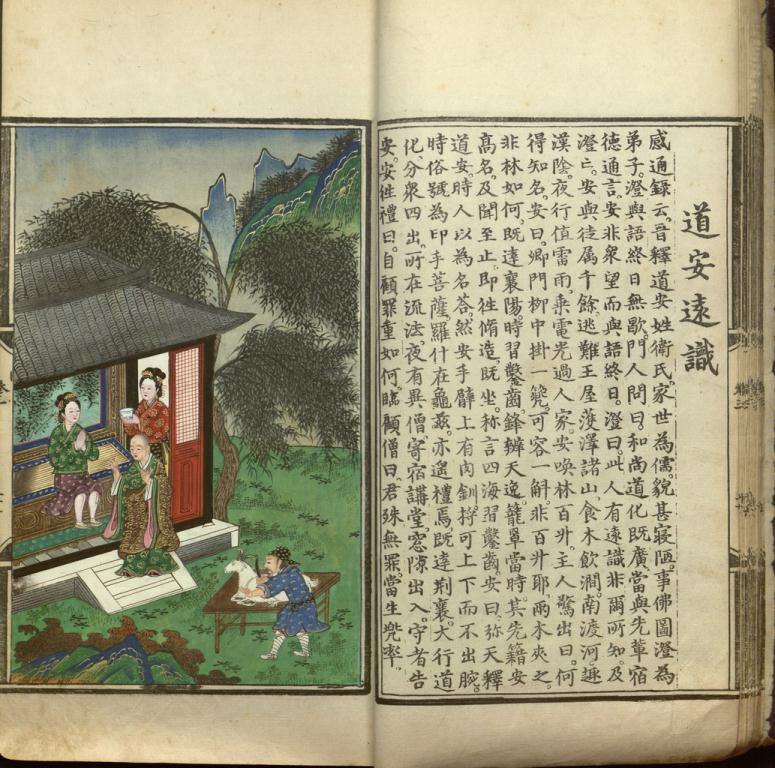 道安遠識
感通錄云。晋釋道安姓衛氏。家世為儒。貌甚寢陋。事佛圖澄為
弟子。澄與語終日無歇。門人問曰。和尚道化既廣。當與先輩宿
德通言。安非衆望而與語終日。澄曰。此人有遠識非爾所知。及
澄亡。安與徒属千餘。逃難王屋。濩澤諸山。食木飲澗。南渡河。趣
漢陰。夜行值雷雨。乘電光過人家。安喚林百升。主人驚出曰。何
得知名。安曰。卿門柳中掛一篼。可容一斛。非百升耶。兩木夾之。
非林如何。既達襄陽。時習鑿齒。鋒辯天逸。籠罩當時。其先籍安
高名。及聞至止。即徃脩造。既坐。称言四海習鑿齒。安曰。弥天釋
道安。時人以為名荅。然安手臂上有肉釧。捋可上下而不出腕。
時俗號為印手菩薩。羅什在龜兹。亦遙禮焉。既達荆襄。大行道
化。分衆四出。所在流法。夜有異僧寄宿講堂。窓隙出入。守者告
安。安徃禮曰。自顧罪重如何。臨顧僧曰。君殊無罪。當生兜率。